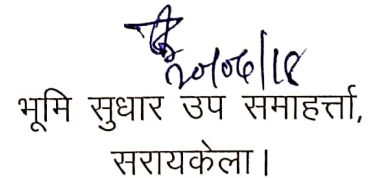 20/06/18
भूमि सुधार उप समाहर्त्ता,
सरायकेला।